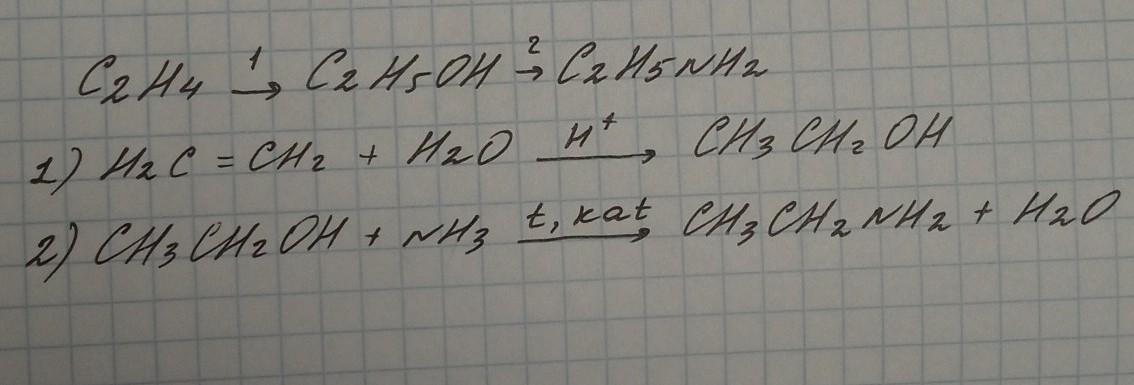 C₂H₄ →¹ C₂H₅OH →² C₂H₅NH₂
1) H₂C = CH₂ + H₂O →H⁺ CH₃CH₂OH
2) CH₃CH₂OH + NH₃ →t, kat CH₃CH₂NH₂ + H₂O